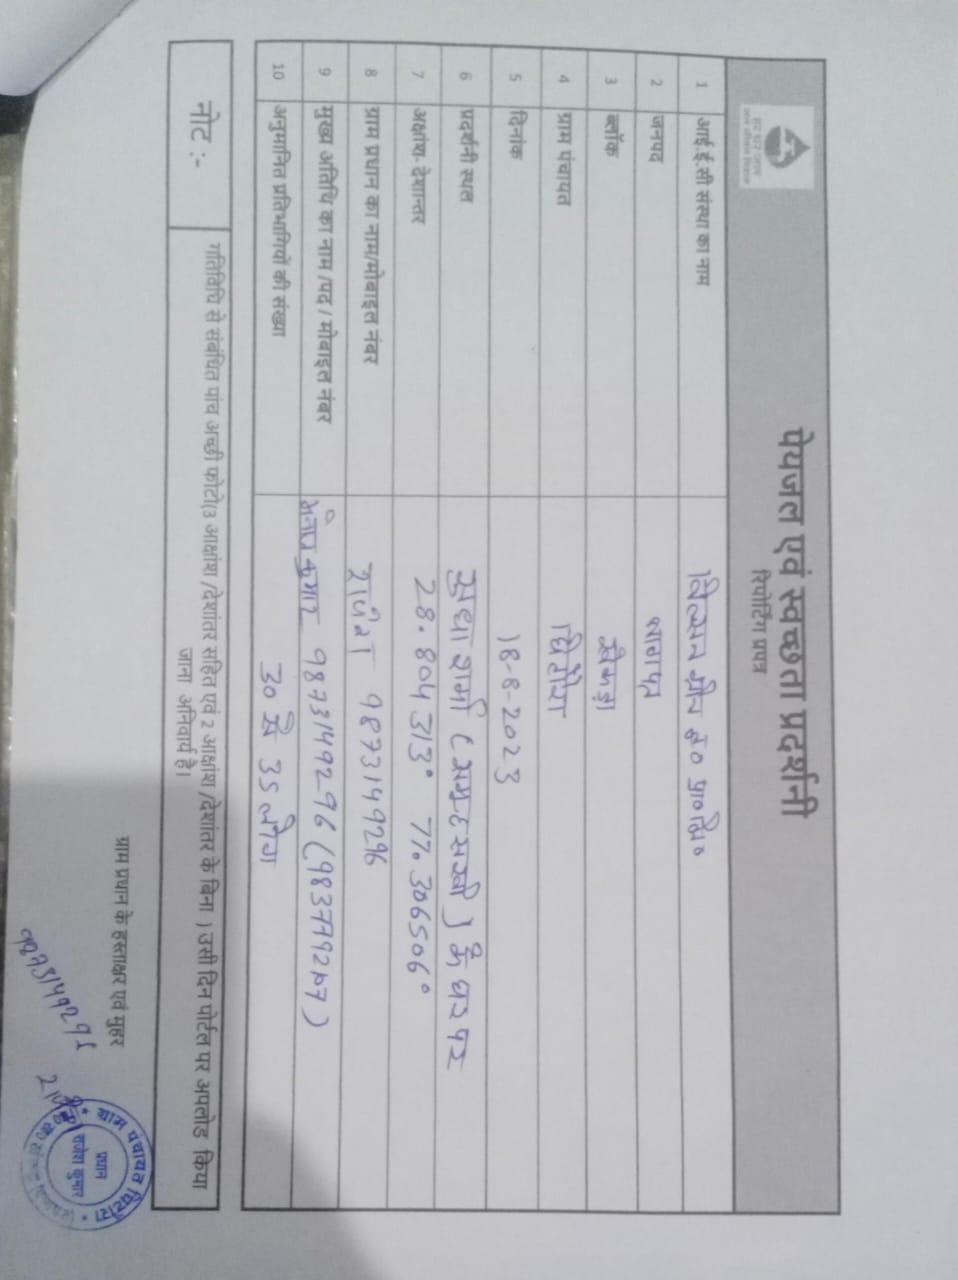 पेयजल एवं स्वच्छता प्रदर्शनी
रिपोर्टिंग प्रपत्र
1 आई.ई.सी संस्था का नाम
2 जनपद बागपत
3 ब्लॉक खेकड़ा
4 ग्राम पंचायत घिटौरा
5 दिनांक 18-8-2023
6 प्रदर्शनी स्थल सुधा शर्मा ( समूह सखी ) के घर पर
7 अक्षांश- देशान्तर 28.804313° 77.306506°
8 ग्राम प्रधान का नाम/मोबाइल नंबर 9873149296
9 मुख्य अतिथि का नाम /पद / मोबाइल नंबर कुमार 9873149296
10 अनुमानित प्रतिभागियों की संख्या 30 से 35 लोग
नोट :- गतिविधि से संबंधित पांच अच्छी फोटो(3 आक्षांश /देशांतर सहित एवं 2 आक्षांश /देशांतर के बिना ) उसी दिन पोर्टल पर अपलोड किया
जाना अनिवार्य है।
ग्राम प्रधान के हस्ताक्षर एवं मुहर
ग्राम पंचायत घिटौरा
प्रधान